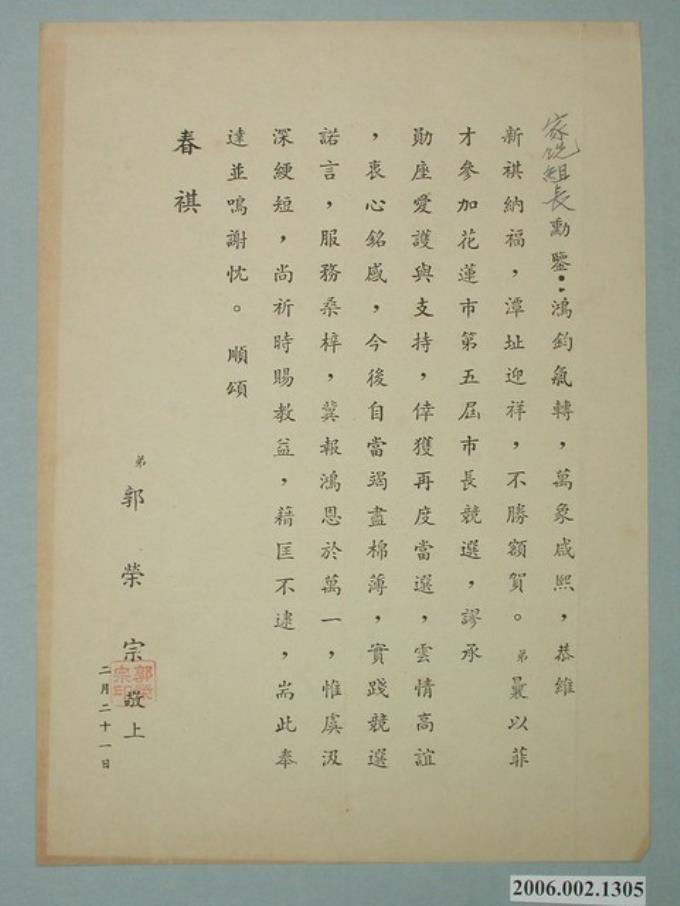 家悅組長勳鑒：鴻鈞氣轉，萬象咸熙，恭維
新祺納福，潭址迎祥，不勝額賀。弟曩以菲
才參加花蓮市第五屆市長競選，謬承
勛座愛護與支持，倖獲再度當選，雲情高誼
，衷心銘感，今後自當竭盡棉薄，實踐競選
諾言，服務桑梓，冀報鴻恩於萬一，惟虞汲
深綆短，尚祈時賜教益，藉匡不逮，耑此奉
達並鳴謝忱。順頌
春祺
弟郭榮宗敬上
郭榮宗印
二月二十一日
2006.002.1305